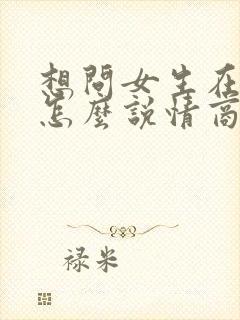 想問女生在
怎麼說情商
禄米